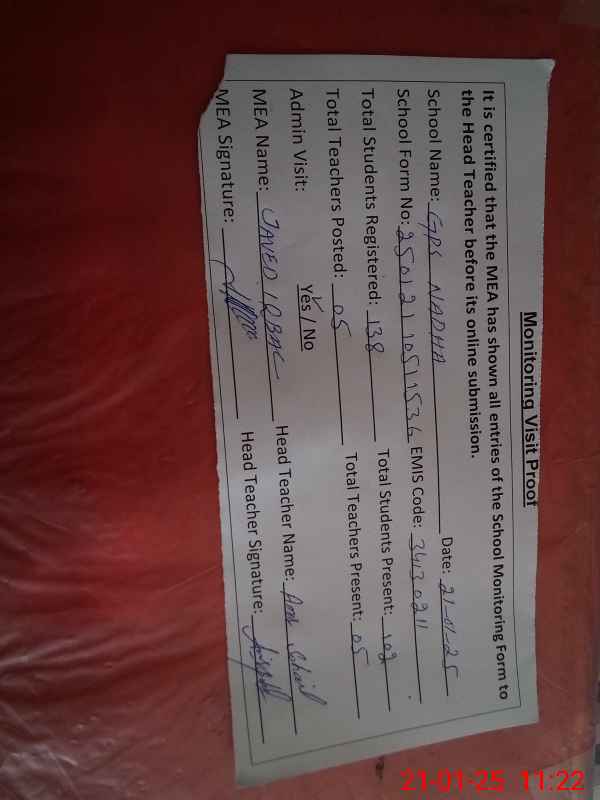 Monitoring Visit Proof
It is certified that the MEA has shown all entries of the School Monitoring Form to
the Head Teacher before its online submission.
School Name: GPS NADHA Date: 21-01-25
School Form No: 25012110511536 EMIS Code: 34130211
Total Students Registered: 138 Total Students Present: 102
Total Teachers Posted: 05 Total Teachers Present: 05
Admin Visit: Yes / No
MEA Name: JAVED IQBAL Head Teacher Name:
MEA Signature: Head Teacher Signature:
21-01-25 11:22